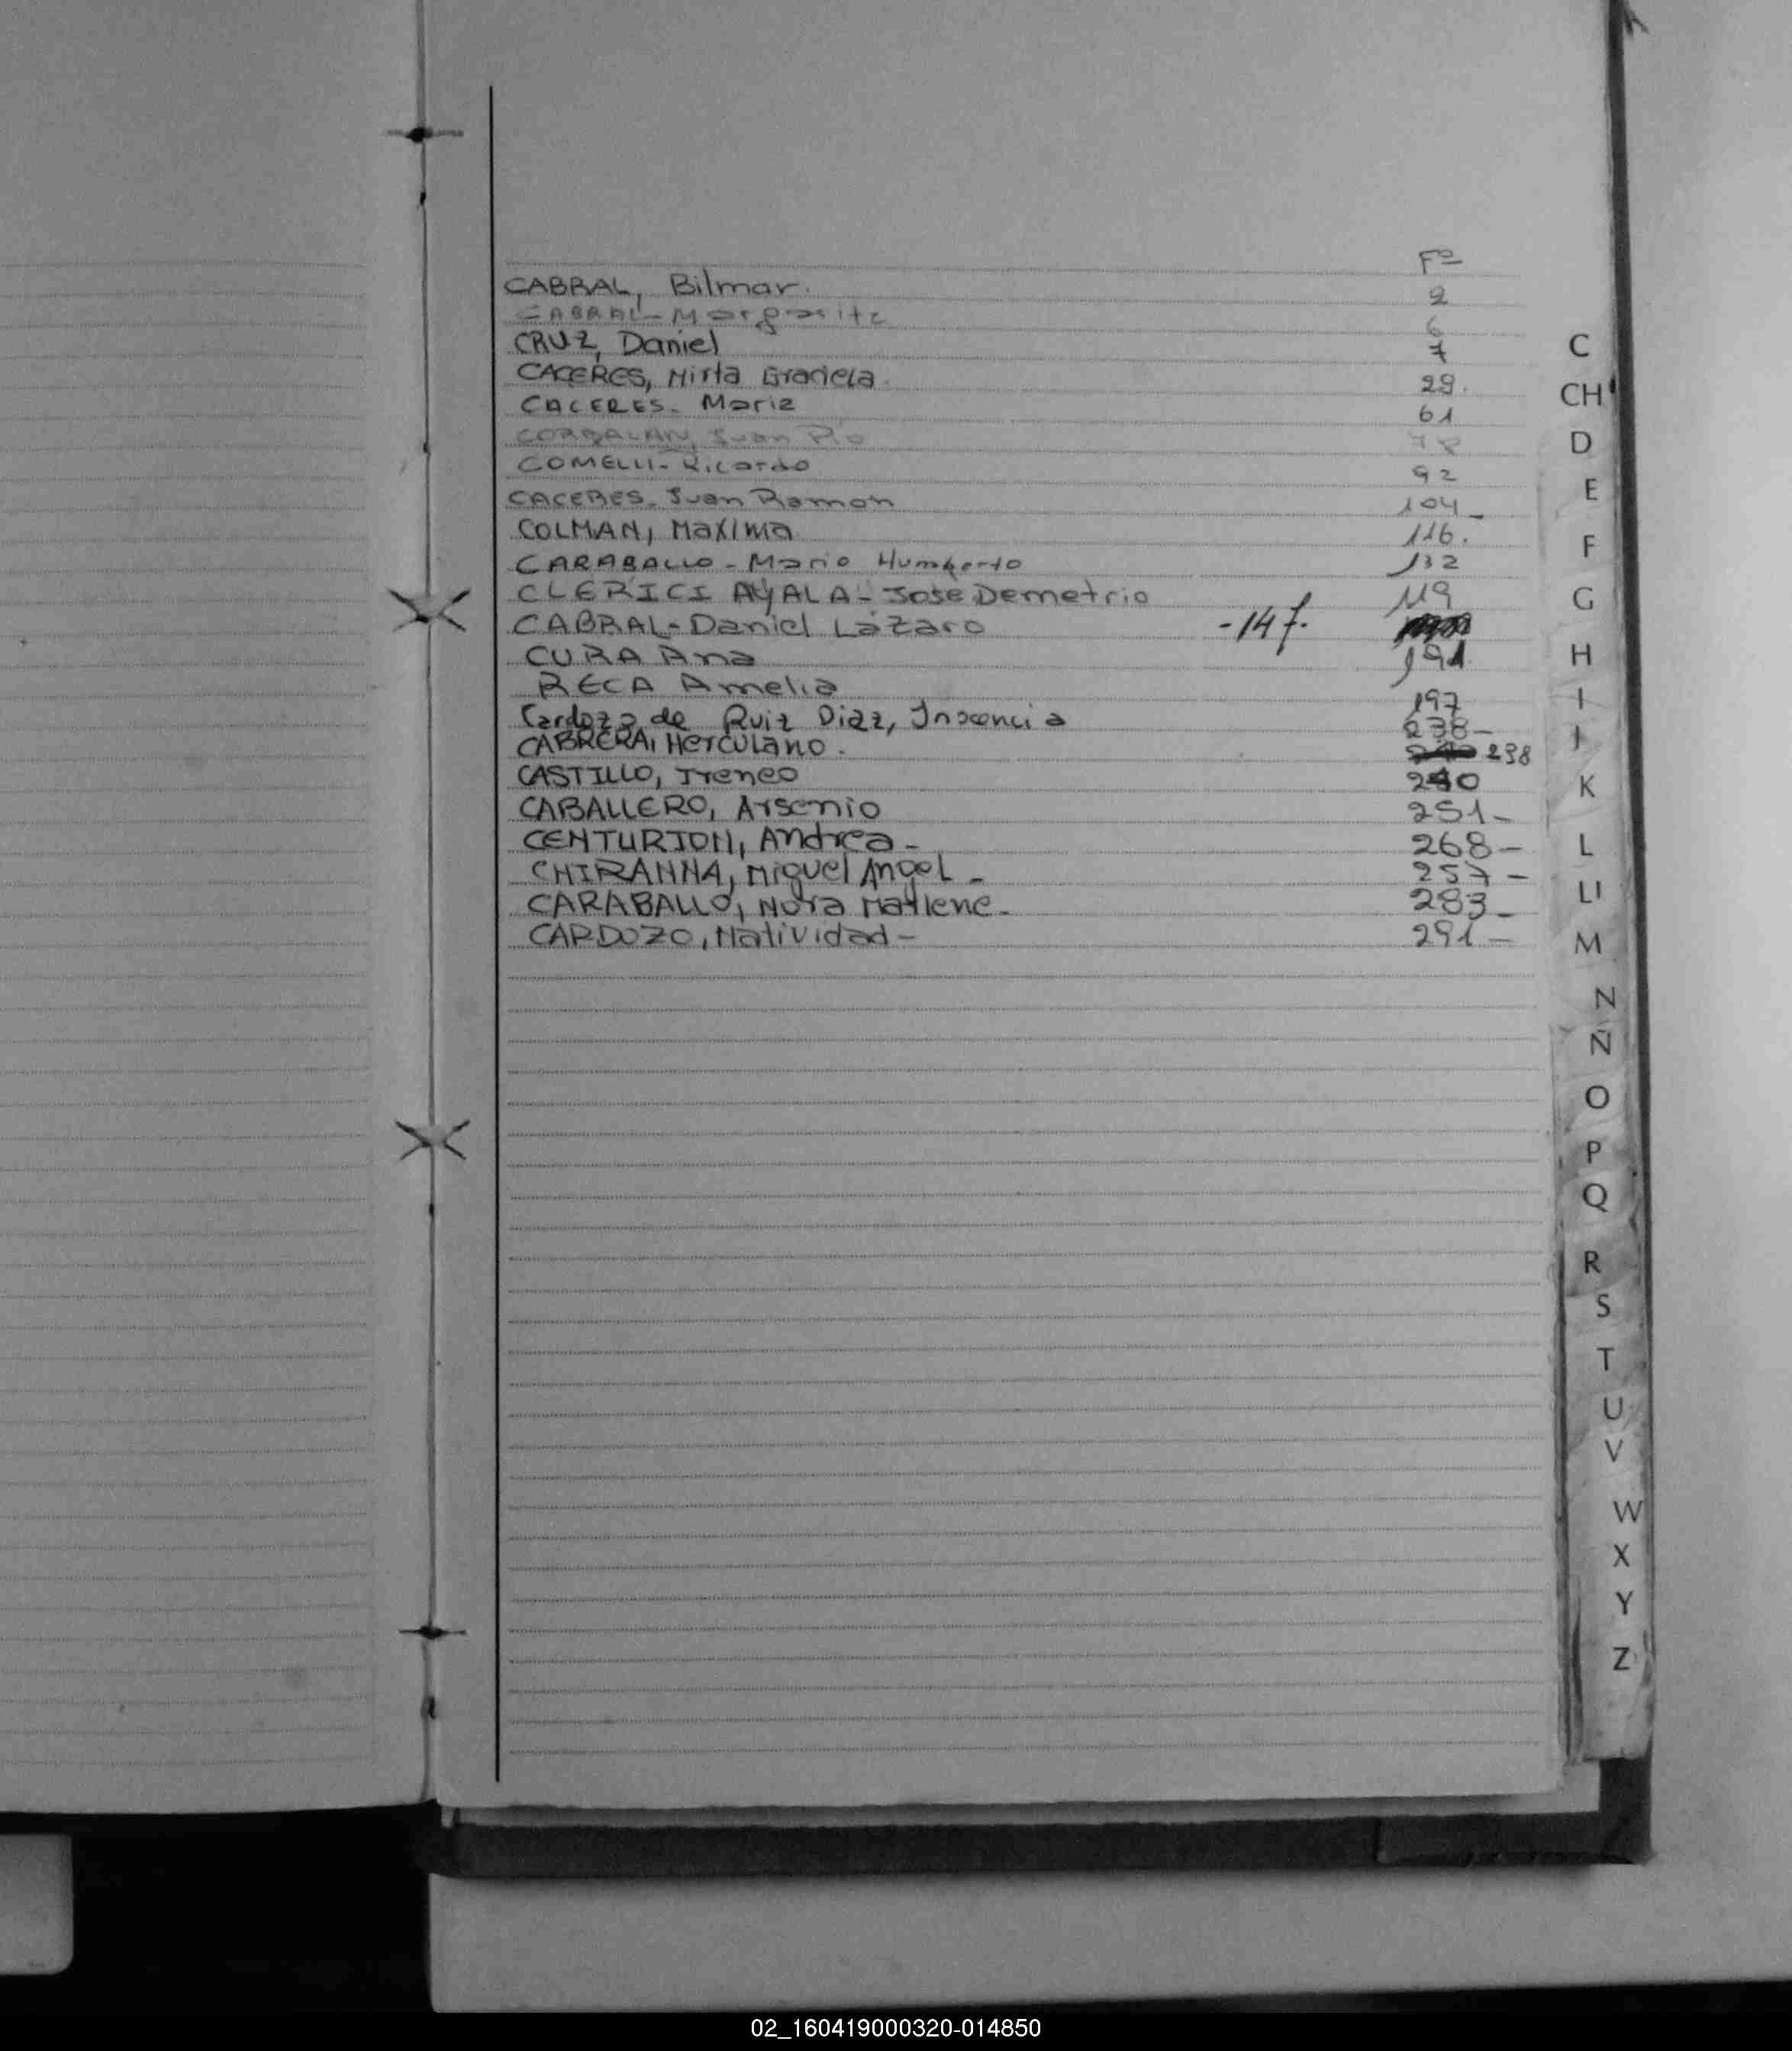 Fº
CABRAL, Bilmar. 2
CABRAL-Margarita 6
CRUZ, Daniel 7
CACERES, Mirta Graciela. 29.
CACERES- Maria 61
CORBALAN, Juan Pio 78
COMELLI- Ricardo 92
CACERES- Juan Ramon 104-
COLMAN, Maxima 116.
CARABALLO- Mario Humberto 132
CLERICI AYALA- Jose Demetrio 119
CABRAL-Daniel Lázaro -147.
CURA Ana 191
RECA Amelia 197
Cardozo de Ruiz Diaz, Inocencia 238-
CABRERA, Herculano. 238
CASTILLO, Ireneo 240
CABALLERO, Arsenio 251-
CENTURION, Andrea- 268-
CHIRANNA, Miguel Angel- 257-
CARABALLO, Nora Marlene- 283-
CARDOZO, Natividad- 291-
C
CH
D
E
F
G
H
I
J
K
L
Ll
M
N
Ñ
O
P
Q
R
S
T
U
V
W
X
Y
Z
02_160419000320-014850